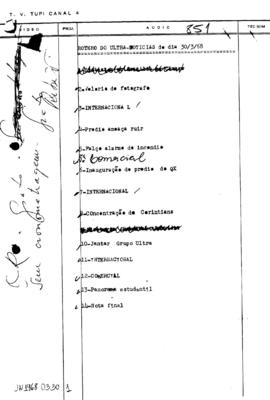 T. V. TUPI CANAL 4
VIDEO PROJ. AUDIO 851 TEC. SOM
ROTERO DO ULTRA-NOTICIAS de dia 30/3/68
2-Velaria de fotografo
3-INTERNACIONAL
4-Predio ameaça ruir
5-Falço alarme de incendio
Comercial
6-Inauguração de predio de QX
7-INTERNACIONAL
9-Concentração do Corintians
10-Jantar Grupo Ultra
11-INTERNACIONAL
12-COMERCIAL
13-Panorama estudantil
14-Nota final
Sem cronometragem.
1